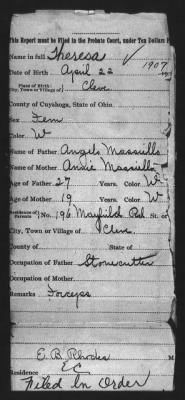 This Report must be Filed in the Probate Court, under Ten Dollars
Name in full Theresa
Date of Birth April 22 1907
Place of Birth—
City, Town or Village of Clev.
County of Cuyahoga, State of Ohio.
Sex Fem
Color W
Name of Father Angelo Massiello
Name of Mother Annie Massiello
Age of Father 27 Years. Color W
Age of Mother 19 Years. Color W
Residence of Parents No. 196 Mayfield Rd St. or
City, Town or Village of Clev.
County of State of
Occupation of Father Stonecutter
Occupation of Mother
Remarks Forceps
E. B. Rhodes M
Residence E C
Filed In Order